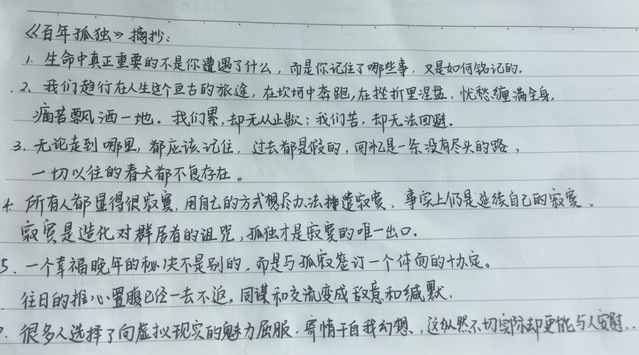 《百年孤独》摘抄:
1. 生命中真正重要的不是你遭遇了什么,而是你记住了哪些事,又是如何铭记的。
2、我们趋行在人生这个亘古的旅途,在坎坷中奔跑,在挫折里涅槃,忧愁缠满全身,
痛苦飘洒一地。我们累,却无从止歇;我们苦,却无法回避。
3、无论走到哪里,都应该记住,过去都是假的,回忆是一条没有尽头的路,
一切以往的春天都不复存在。
4. 所有人都显得很寂寞,用自己的方式想尽办法排遣寂寞,事实上仍是延续自己的寂寞。
寂寞是造化对群居者的诅咒,孤独才是寂寞的唯一出口。
5、一个幸福晚年的秘诀不是别的,而是与孤寂签订一个体面的协定。
往日的推心置腹已经一去不返,同谋和交流变成敌意和缄默。
7. 很多人选择了向虚拟现实的魅力屈服,寄情于自我幻想,这纵然不切实际却更能与人安慰..